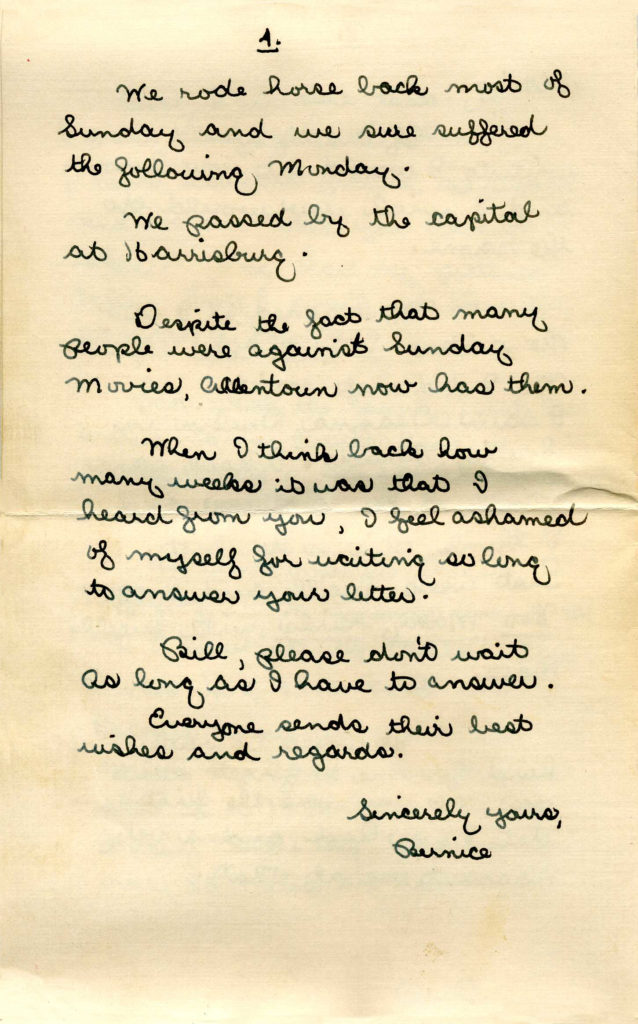 1.
We rode horse back most of
Sunday and we sure suffered
the following Monday.
We passed by the capital
at Harrisburg.
Despite the fact that many
people were against Sunday
Movies, Allentown now has them.
When I think back how
many weeks it was that I
heard from you, I feel ashamed
of myself for waiting so long
to answer your letter.
Bill, please don't wait
as long as I have to answer.
Everyone sends their best
wishes and regards.
Sincerely yours,
Bernice